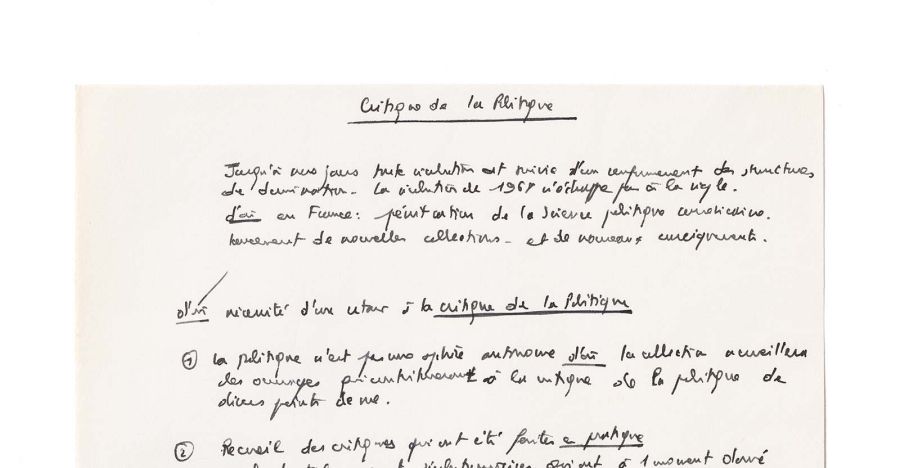 Critique de la Politique
Jusqu'à nos jours toute révolution est suivie d'un renforcement des structures
de domination. La révolution de 1968 n'échappe pas à la règle.
d'où en France : pénétration de la Science politique américaine.
lancement de nouvelles collections - et de nouveaux enseignements.
d'où nécessité d'un retour à la critique de la Politique
① la politique n'est pas une sphère autonome d'où la collection accueillera
des ouvrages qui contribueront à la critique de la politique de
divers points de vue.
② Recueil des critiques qui ont été faites en pratique
à 1 moment donné